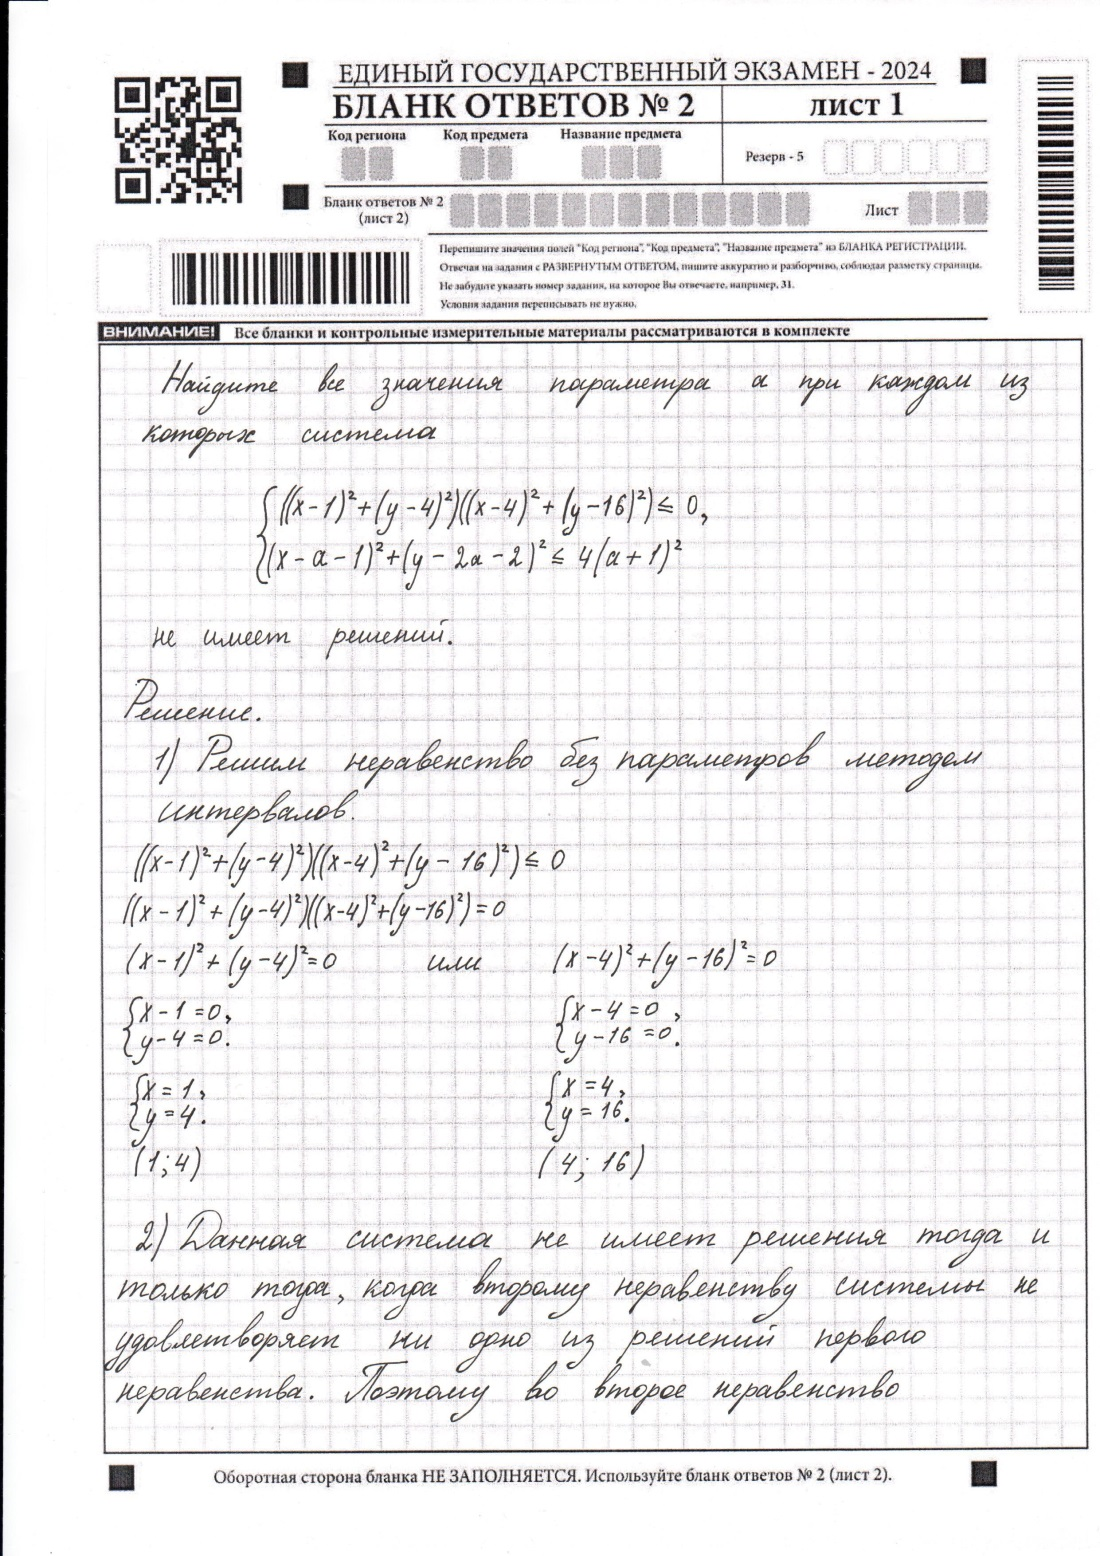 ЕДИНЫЙ ГОСУДАРСТВЕННЫЙ ЭКЗАМЕН - 2024
БЛАНК ОТВЕТОВ № 2
лист 1
Код региона
Код предмета
Название предмета
Резерв - 5
Бланк ответов № 2
(лист 2)
Лист
Перепишите значения полей "Код региона", "Код предмета", "Название предмета" из БЛАНКА РЕГИСТРАЦИИ.
Отвечая на задания с РАЗВЕРНУТЫМ ОТВЕТОМ, пишите аккуратно и разборчиво, соблюдая разметку страницы.
Не забудьте указать номер задания, на которое Вы отвечаете, например, 31.
Условия задания переписывать не нужно.
ВНИМАНИЕ! Все бланки и контрольные измерительные материалы рассматриваются в комплекте
Найдите все значения параметра a при каждом из
которых система
{((x-1)²+(y-4)²)((x-4)²+(y-16)²)≤0,
{(x-a-1)²+(y-2a-2)²≤4(a+1)²
не имеет решений.
Решение.
1) Решим неравенство без параметров методом
интервалов.
((x-1)²+(y-4)²)((x-4)²+(y-16)²)≤0
((x-1)²+(y-4)²)((x-4)²+(y-16)²)=0
(x-1)²+(y-4)²=0 или (x-4)²+(y-16)²=0
{x-1=0, {x-4=0,
{y-4=0. {y-16=0.
{x=1, {x=4,
{y=4. {y=16.
(1;4) (4; 16)
2) Данная система не имеет решения тогда и
только тогда, когда второму неравенству системы не
удовлетворяет ни одно из решений первого
неравенства. Поэтому во второе неравенство
Оборотная сторона бланка НЕ ЗАПОЛНЯЕТСЯ. Используйте бланк ответов № 2 (лист 2).